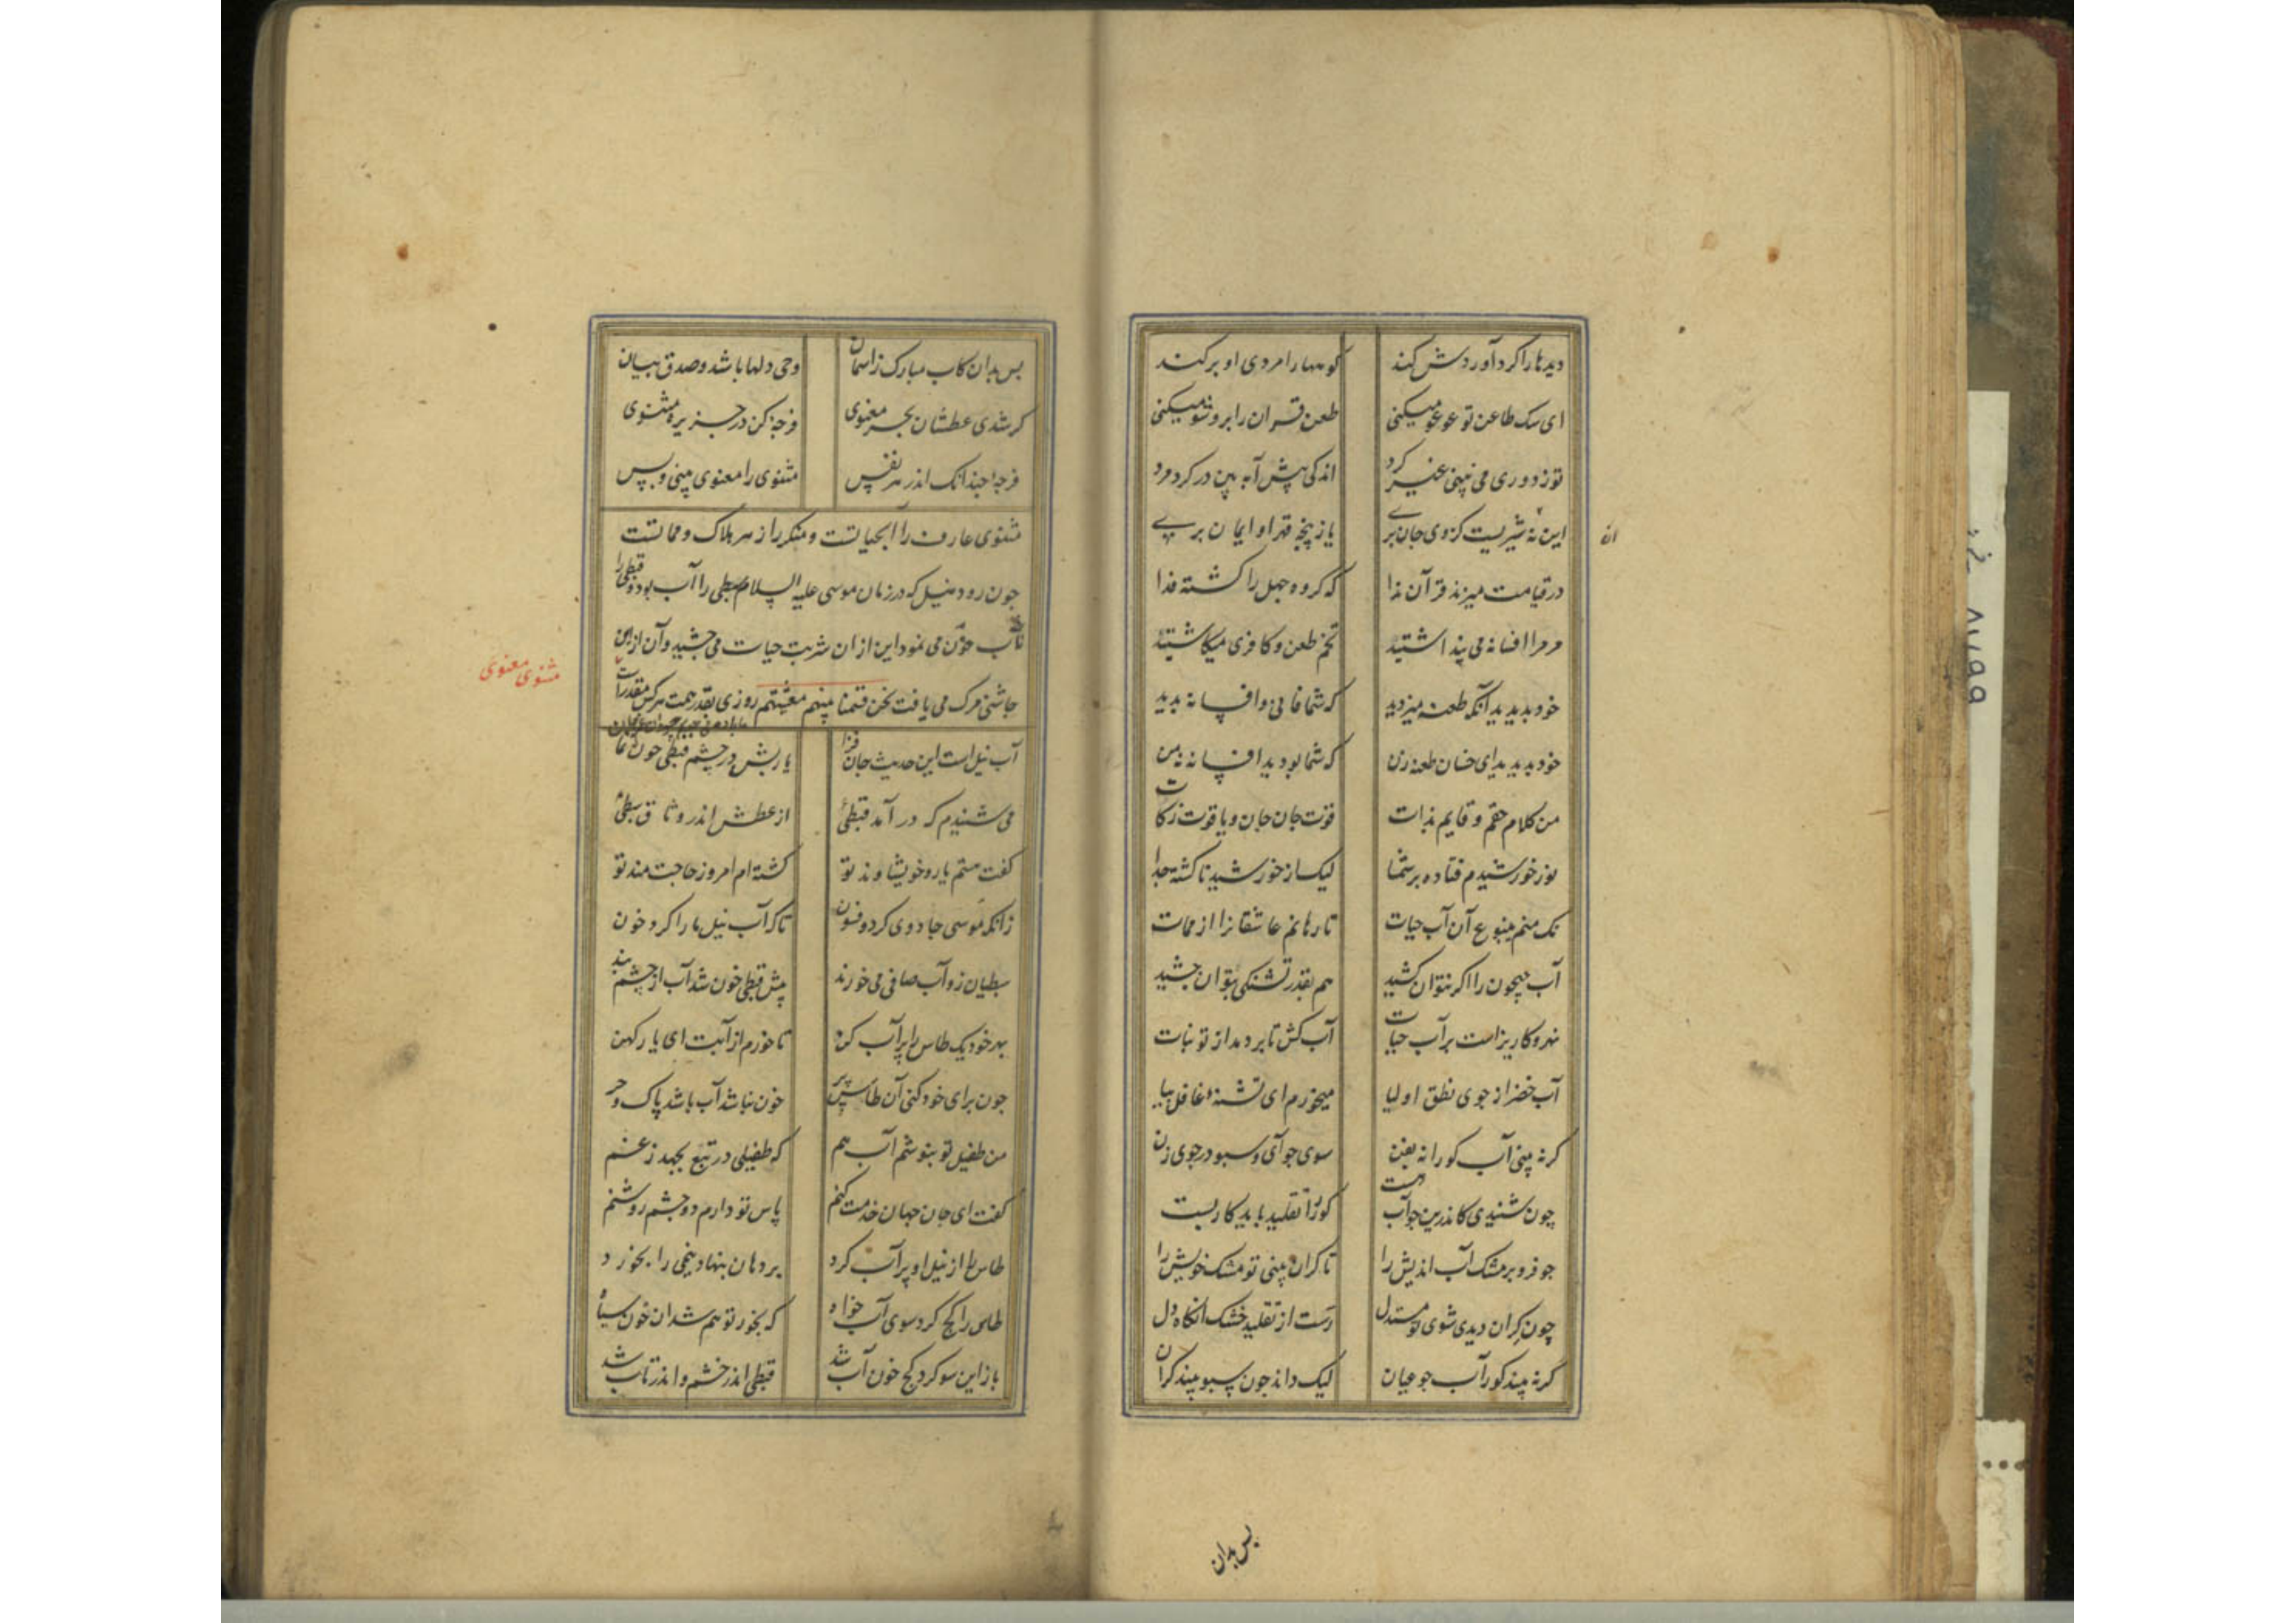 دیدها را کرد آوردش کند کوهها را مردی او بر کند
ای سک طاعن تو عوعو میکنی طعن قرآن را برون شو میکنی
تو ز دوری می نپنی غیر کرد اندکی پیش آ ببین در کرد مرد
این نه شیریست کز وی جان بری یا ز پنجه قهر او ایمان بری
ان
در قیامت میزند قرآن ندا که کروه جهل را کشته فدا
مر مرا افسانه می پنداشتید تخم طعن و کافری میکاشتید
خود بدیدید آنکه طعنه میزدید که شما فانی و افسانه بدید
خود بدیدید ای خسان طعنه زن که شما بودید افسانه نه من
من کلام حقم و قایم بذات قوت جان جان و یاقوت زکات
نور خورشیدم فتاده بر شما لیک از خورشید ناکشته جدا
نک منم ینبوع آن آب حیات تا رهانم عاشقانرا از ممات
آب جیحون را اکر نتوان کشید هم بقدر تشنکی بتوان چشید
نهر و کاریز است بر آب حیات آب کش تا بر دمد از تو نبات
آب خضر از جوی نطق اولیا میخورم ای تشنه غافل بیا
کر نه پینی آب کورانه بفن سوی جو آی و سبو در جوی زن
چون شنیدی کاندرین جو آب هست کور را تقلید باید کار بست
جو فرو بر مشک آب اندیش را تا کران پینی تو مشک خویش را
چون کران دیدی شوی تو مستدل رست از تقلید خشک آنکاه دل
کر نه پیند کور آب جو عیان لیک داند جون سبو پیند کران
بس بدان
بس بدان کاب مبارک ز اسمان وحی دلها باشد و صدق بیان
کر شدی عطشان بحر معنوی فرجه کن در جزیره مثنوی
فرجه جندانک اندر هر نفس مثنوی را معنوی پینی و بس
مثنوی عارف را آبحیاتست و منکر را زهر هلاک و مماتست
جون رود نیل که در زمان موسی علیه السلام سبطی را آب بود و قبطی را
خون می نمود این از ان شربت حیات می چشید و آن از این
جاشنی مرک می یافت نحن قسمنا بینهم معیشتهم روزی بقدر همت هرکس مقدر است
مثنوی معنوی
آب نیل است این حدیث جان فزا یا ربش در چشم قبطی خون نما
می شنیدم که در آمد قبطئ از عطش اندر وثاق سبطئ
کفت هستم یار و خویشاوند تو کشته ام امروز حاجت مند تو
زانکه موسی جادوی کرد و فسون تا که آب نیل ما را کرد خون
سبطیان زو آب صافی می خورند پیش قبطی خون شد آب از چشم بند
بهر خود یک طاس را پر آب کن تا خورم از آبت ای یار کهن
جون برای خود کنی آن طاس پر خون نباشد آب باشد پاک و حر
من طفیل تو بنوشم آب هم که طفیلی در تبع بجهد ز غم
کفت ای جان جهان خدمت کنم پاس تو دارم دو چشم روشنم
طاس را از نیل او پر آب کرد بر دهان بنهاد نیمی را بخورد
طاس را کج کرد سوی آب خواه که بخور تو هم شد ان خون سیاه
باز این سو کرد کج خون آب شد قبطی اندر خشم و اندر تاب شد